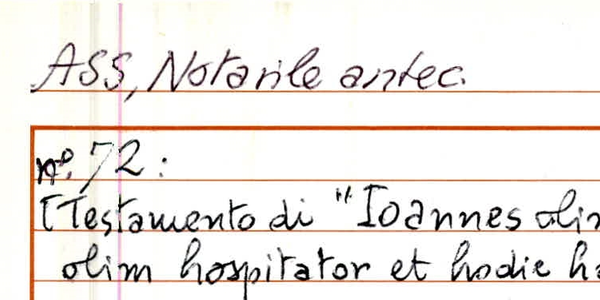 ASS, Notarile antec.
n°. 72:
[Testamento di "Ioannes olim
olim hospitator et hodie